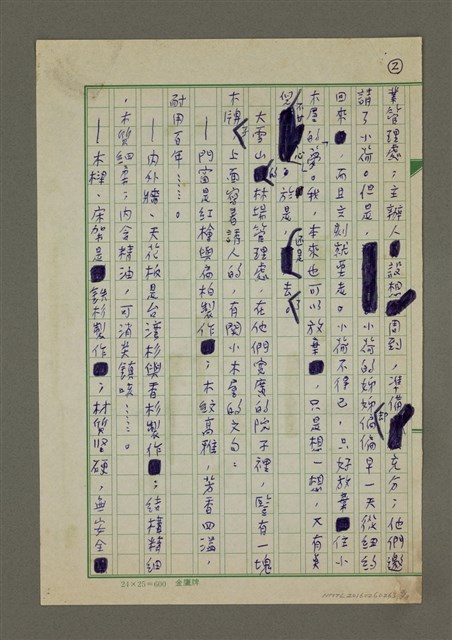 ②
業管理處;主辦人設想周到,準備充分;他們邀
請了小荷。但是,小荷的姊姊卻偏偏早一天從紐約
回來,而且立刻就要走。小荷不得已,只好放棄住小
木屋的夢。我,本來也可以放棄,只是想一想,又有
於是,還是去了。
大雪山的林場管理處,在他們寬廣的院子裡,豎有一塊
木牌子,上面寫着請人的,有關小木屋的文句:
——門窗是紅檜與扁柏製作;木紋高雅,芳香四溢,
耐用百年……。
——內外牆、天花板是台灣杉與香杉製作;結構精細
,木質細柔;內含精油,可消炎鎮咳……。
——木樑、床架是鐵杉製作;材質堅硬,無安全
24×25=600 金鷹牌